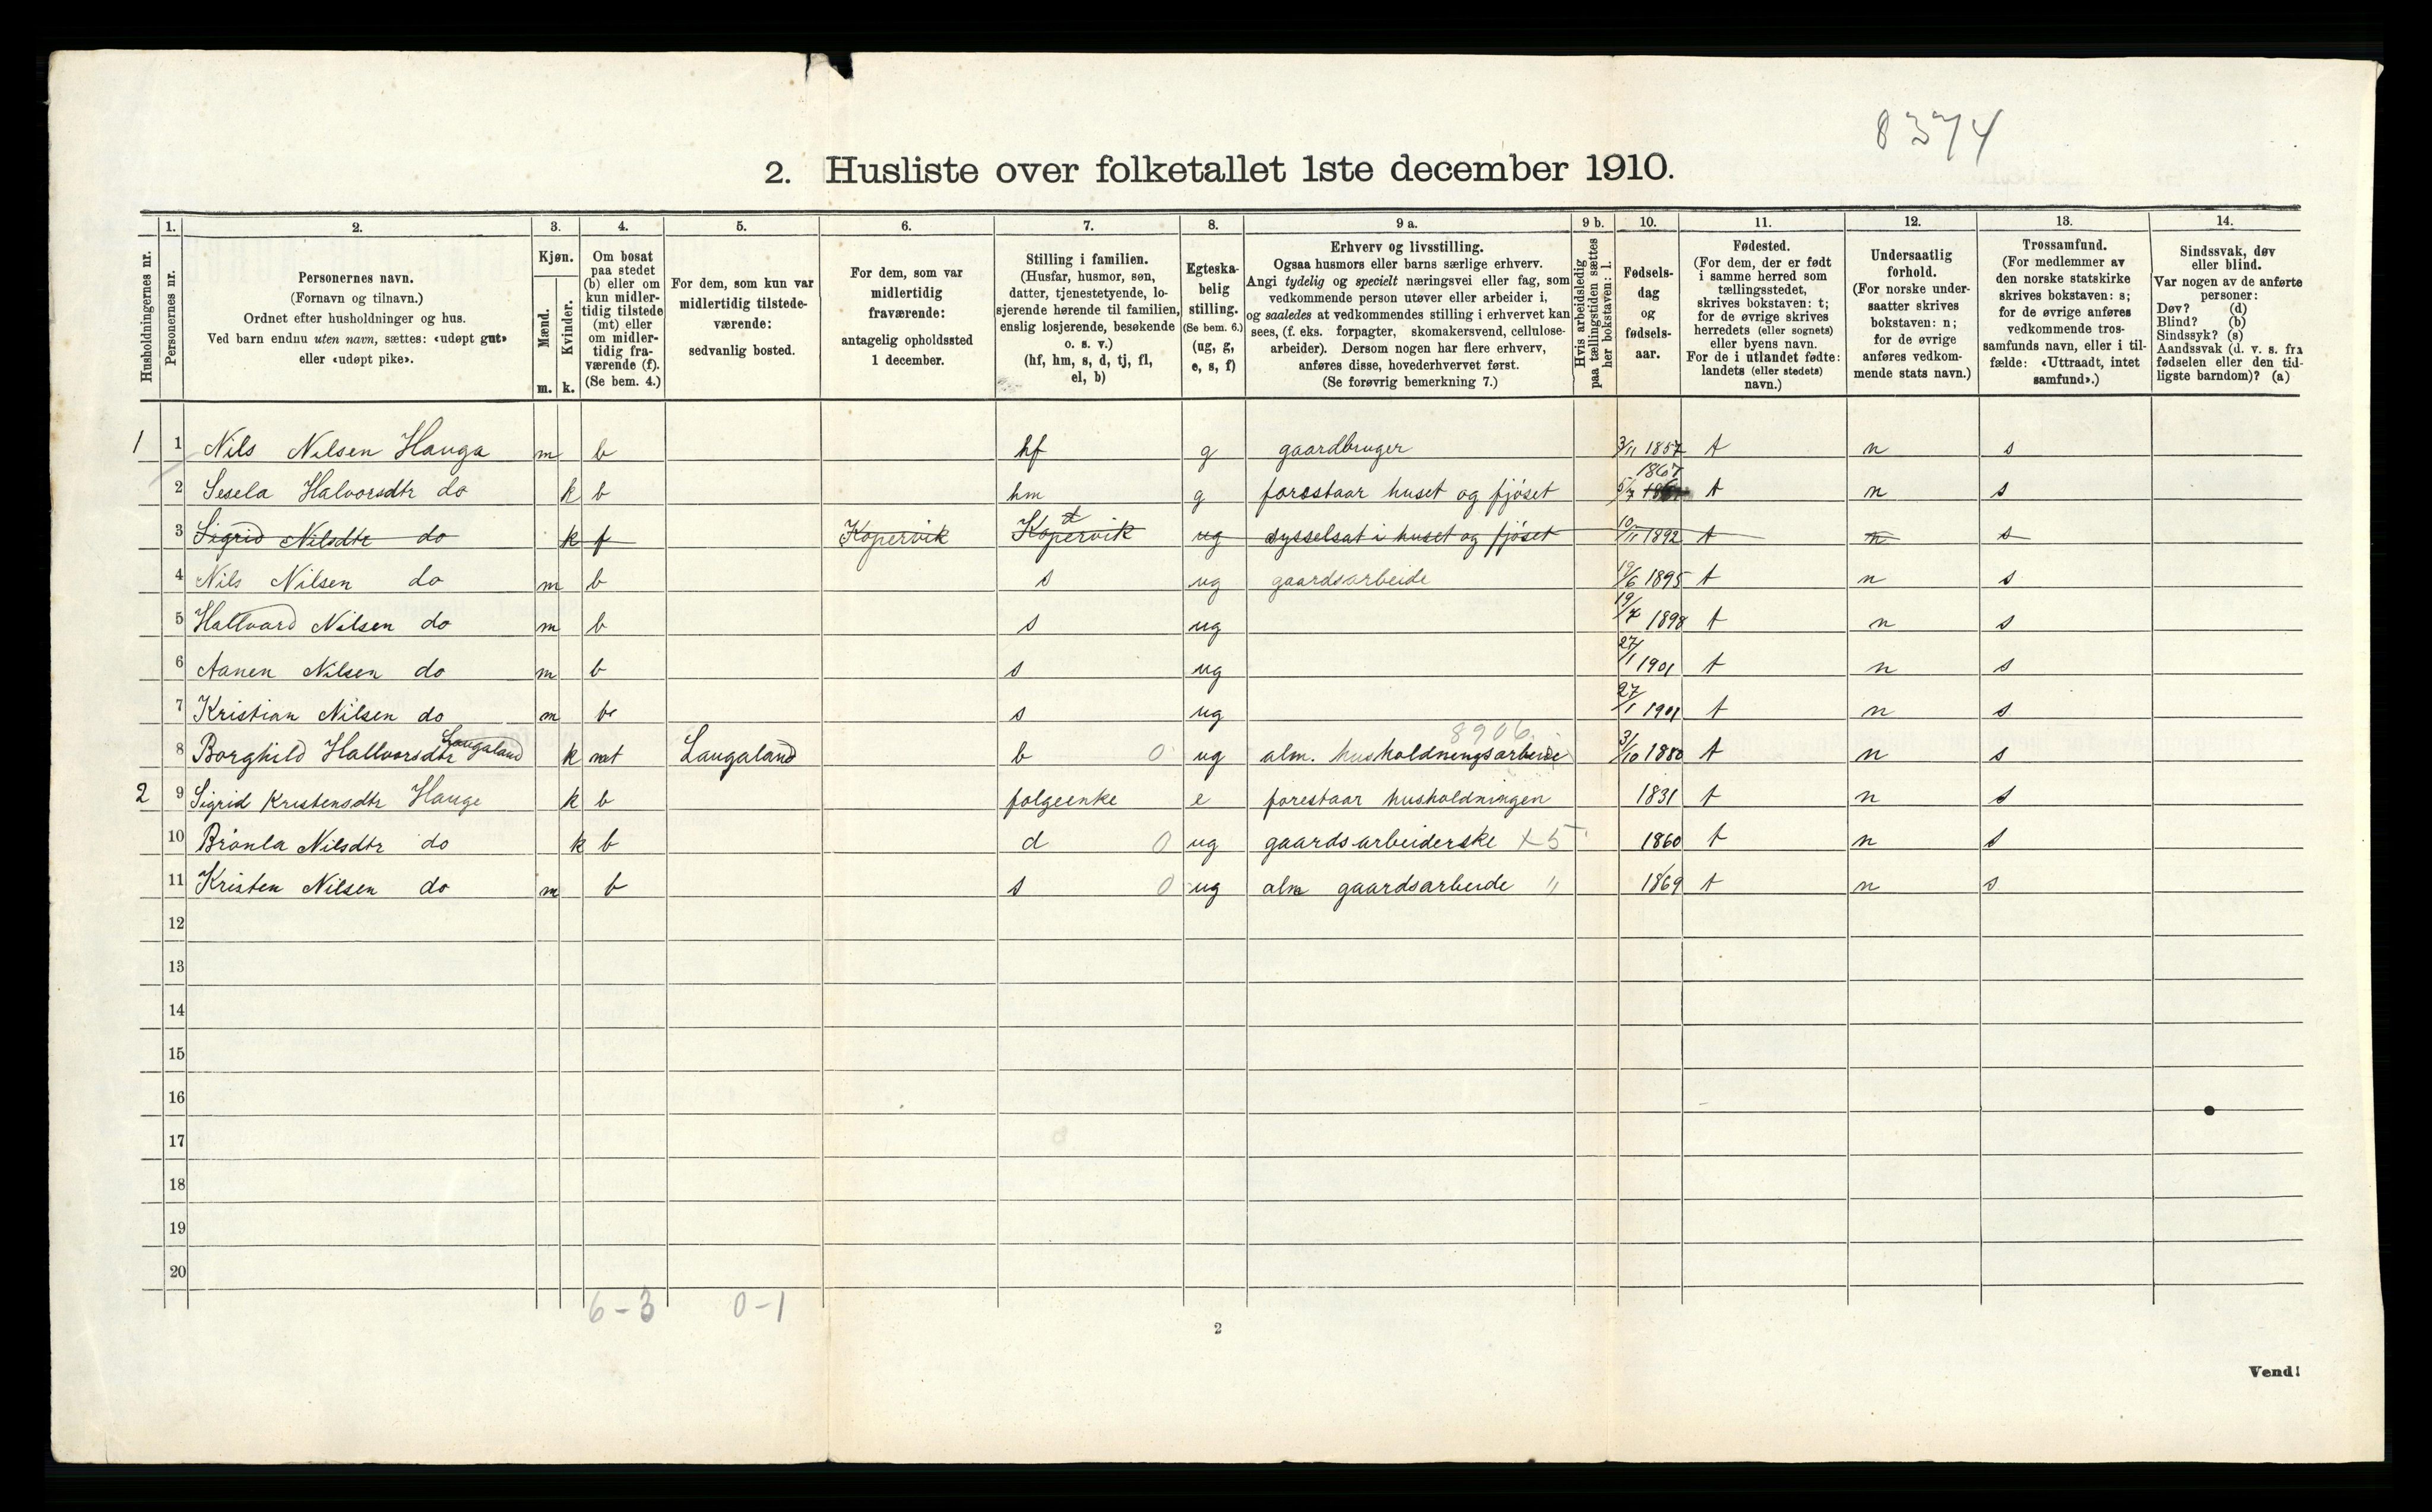 8374
2. Husliste over folketallet 1ste december 1910.
1. 2. 3. 4. 5. 6. 7. 8. 9 a. 9 b. 10. 11. 12. 13. 14.
Husholdningernes nr.
Personernes nr.
Personernes navn.
(Fornavn og tilnavn.)
Ordnet efter husholdninger og hus.
Ved barn endnu uten navn, sættes: «udøpt gut»
eller «udøpt pike».
Kjøn.
Mænd.
m.
Kvinder.
k.
Om bosat
paa stedet
(b) eller om
kun midler-
tidig tilstede
(mt) eller
om midler-
tidig fra-
værende (f).
(Se bem. 4.)
For dem, som kun var
midlertidig tilstede-
værende:
sedvanlig bosted.
For dem, som var
midlertidig
fraværende:
antagelig opholdssted
1 december.
Stilling i familien.
(Husfar, husmor, søn,
datter, tjenestetyende, lo-
sjerende hørende til familien,
enslig losjerende, besøkende
o. s. v.)
(hf, hm, s, d, tj, fl,
el, b)
Egteska-
belig
stilling.
(Se bem. 6.)
(ug, g,
e, s, f)
Erhverv og livsstilling.
Ogsaa husmors eller barns særlige erhverv.
Angi tydelig og specielt næringsvei eller fag, som
vedkommende person utøver eller arbeider i,
og saaledes at vedkommendes stilling i erhvervet kan
sees, (f. eks. forpagter, skomakersvend, cellulose-
arbeider). Dersom nogen har flere erhverv,
anføres disse, hovederhvervet først.
(Se forøvrig bemerkning 7.)
Hvis arbeidsledig
paa tællingstiden sættes
her bokstaven: l.
Fødsels-
dag
og
fødsels-
aar.
Fødested.
(For dem, der er født
i samme herred som
tællingsstedet,
skrives bokstaven: t;
for de øvrige skrives
herredets (eller sognets)
eller byens navn.
For de i utlandet fødte:
landets (eller stedets)
navn.)
Undersaatlig
forhold.
(For norske under-
saatter skrives
bokstaven: n;
for de øvrige
anføres vedkom-
mende stats navn.)
Trossamfund.
(For medlemmer av
den norske statskirke
skrives bokstaven: s;
for de øvrige anføres
vedkommende tros-
samfunds navn, eller i til-
fælde: «Uttraadt, intet
samfund».)
Sindssvak, døv
eller blind.
Var nogen av de anførte
personer:
Døv? (d)
Blind? (b)
Sindssyk? (s)
Aandssvak (d. v. s. fra
fødselen eller den tid-
ligste barndom)? (a)
1 1 Nils Nilsen Hauga m b hf g gaardbruger 3/11 1857 t n s
1867
2 Sesela Halvorsdtr do k b hm g forestaar huset og fjøset 5/7 t n s
3 Sigrid Nilsdtr do k f Kopervik Kopervik d ug sysselsat i huset og fjøset 10/11 1892 t n s
4 Nils Nilsen do m b s ug gaardsarbeide 19/6 1895 t n s
5 Hallvard Nilsen do m b s ug 19/7 1898 t n s
6 Aanen Nilsen do m b s ug 27/1 1901 t n s
7 Kristian Nilsen do m b s ug 27/1 1901 t n s
Laugaland 8906
8 Borghild Hallvorsdtr k mt Laugaland b 0 ug alm. husholdningsarbeide 3/10 1880 t n s
2 9 Sigrid Kristensdtr Hauge k b folgeenke e forestaar husholdningen 1831 t n s
10 Brönla Nilsdtr do k b d 0 ug gaardsarbeiderske x5 1860 t n s
11 Kristen Nilsen do m b s 0 ug alm gaardsarbeide " 1869 t n s
12
13
14
15
16
17
18
19
20
6-3 0-1
2
Vend!